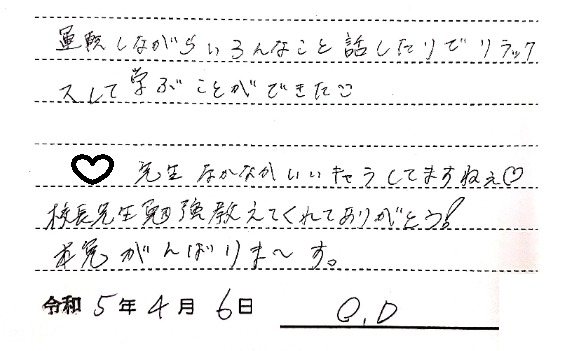 運転しながらいろんなこと話したりでリラック
スして学ぶことができた☺
♡先生なかなかいいキャラしてますねぇ♡
校長先生勉強教えてくれてありがとう!
本免がんばりま～す。
令和5年4月6日 O.D